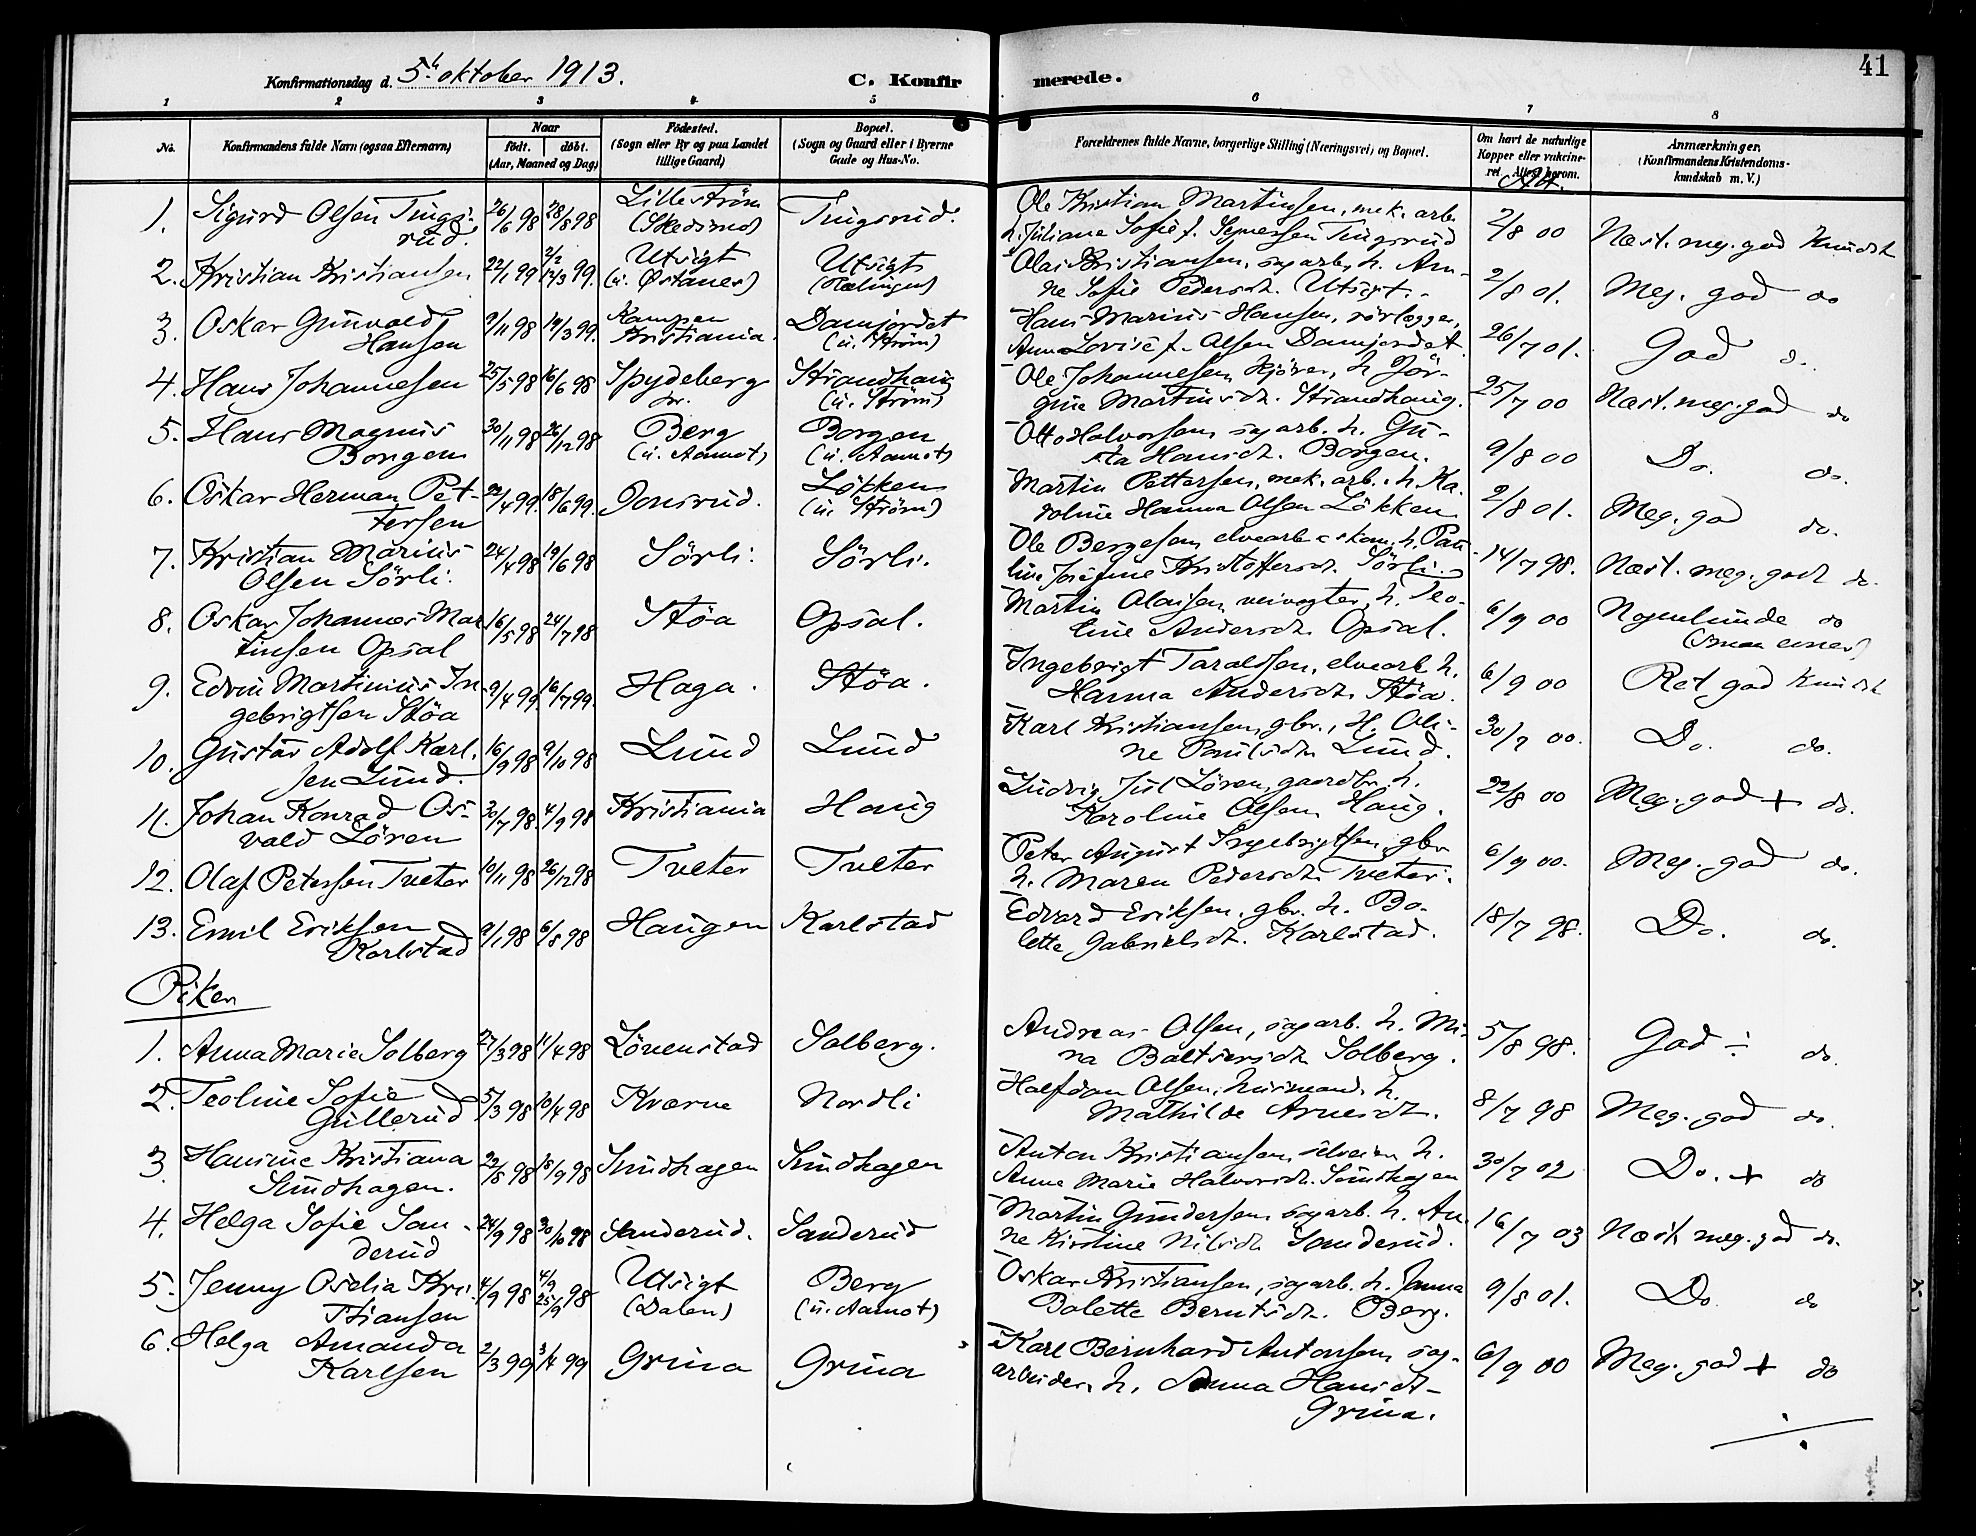 Konfirmationsdag d. 5h oktober 1913. C. Konfirmerede. 41
1 2 3 4 5 6 7 8
No. Konfirmandens fulde Navn (ogsaa Efternavn) Naar født. døbt. (Aar, Maaned og Dag) Fødested. (Sogn eller By og paa Landet tillige Gaard) Bopæl. (Sogn og Gaard eller i Byerne Gade og Hus-No. Forældrenes fulde Navne, borgerlige Stilling (Næringsvei) og Bopæl. Om havt de naturlige Kopper eller vakcineret. Attest herom. Anmærkninger. (Konfirmandens Kristendomskundskab m. V.)
1. Sigurd Olsen Tingsrud. 26/6 98 28/8 98 Lilleström (Skedsmo) Tingsrud. Ole Kristian Martinsen, mek. arb.
h. Juliane Sofie f. Tingsrud 2/8 00 Næst. meg. god Kundsk
2. Kristian Kristiansen 22/1 99 2/2 14/3 99. Utsigt (u. Østanes) Utsigt (Rælingen) Olai Kristiansen, sagarb, h. An-
ne Sofie Pedersdt. Utsigt. 2/8 01. Meg. god do
3. Oskar Gunvald Hansen 9/11 98 19/3 99. Kampen Kristiania. Damjordet (u. Strøm) Hans Marius Hansen, rørlægger,
Anna Lovise f. Olsen Damjordet. 26/7 01. God d.
4. Hans Johannesen 25/5 98 16/6 98 Spydeberg pr. Strandhaug (u. Strøm) Ole Johannesen kjører, h. Jör-
gine Martinsdt. Strandhaug. 25/7 00 Næst. meg. god do
5. Hans Magnus Borgen 30/11 98 26/12 98 Berg (u. Aamot) Borgen (u. Aamot) Otto Halvorsen sagarb. h. Gu-
sta Hansdt. Borgen. 9/8 00 Do. do.
6. Oskar Herman Pettersen 22/4 99. 18/6 99. Lökken (u. Strøm) Martin Pettersen, mek. arb. h. Ka-
roline Hanna Olsen Lökken 2/8 01. Meg. god do.
7. Kristian Marius Olsen Sörli. 24/4 98 19/6 98 Sörli. Sörli. Ole Bergesen elvearb h. Pau-
line Josefine Kristoffersdt. Sörli. 14/7 98. Næst. meg. godt do.
8. Oskar Johannes Martinsen Opsal 16/5 98 24/7 98 Støa Opsal. Martin Olaisen, veivogter, h. Teo-
line Andersdt. Opsal. 6/9 00 Nogenlunde do
9. Edvin Martinius Ingebrigtsen Støa 9/4 99. 16/7 99. Haga. Støa. Ingebrigt Taraldsen, elvearb. h.
Hanna Andersdt. Støa. 6/9 00 Ret god Kundsk
10. Gustav Adolf Karlsen Lund. 16/9 98 9/10 98 Lund Lund Karl Kristiansen, gbr., H. Oli-
ne Paulsdt. Lund. 30/7 00. Do. do.
11. Johan Konrad Osvald Lören 30/7 98. 4/9 98 Kristiania Haug Ludvig Jul Lören, gaardbr. h.
Karoline Olsen Haug. 22/8 00 Meg. god + do.
12. Olaf Petersen Tveter 10/11 98 26/12 98 Tveter Tveter Peter August Ingebrigtsen gbr
h. Maren Pedersdt Tveter. 6/9 00. Meg. god do.
13. Emil Eriksen Karlstad 9/1 98 6/8 98 Haugen Karlstad Edvard Eriksen. gbr. h. Bo-
lette Gabrielsdt. Karlstad. 18/7 98. Do. do.
Piker
1. Anna Marie Solberg 27/3 98 11/4 98 Lövenstad Solberg. Andreas Olsen, sagarb. h. Mi-
na Baltsersdt. Solberg. 5/8 98. God ÷ do.
2. Teoline Sofie Gullerud 5/3 98 10/4 98 Kværne Nordli Halfdan Olsen, husmand. h.
Mathilde Arnesdt. 8/7 98 Meg. god do.
3. Hansine Kristiana Sundhagen. 22/8 98 18/9 98 Sundhagen Sundhagen Anton Kristiansen, h.
Anne Marie Halvorsdt. Sundhagen 30/7 02 Do. + do
4. Helga Sofie Sanderud 24/9 98 30/10 98 Sanderud. Sanderud Martin Gundersen sagarb. h. An-
ne Kirstine Nilsdt. Sanderud. 16/7 03 Næst meg. god do.
5. Jenny Oselia Kristiansen 4/9 98 4/9 25/9 98 Utsigt (Dalen) Berg (u. Aamot) Oskar Kristiansen, sagarb. h. Janna
Bolette Berntsdt. Berg. 9/8 01. Do. do
6. Helga Amanda Karlsen 2/3 99 3/4 99 Grina Grina Karl Bernhard Antonsen sag-
arbeider. h. Anna Hansdt-
Grina. 6/9 00 Meg. god + do